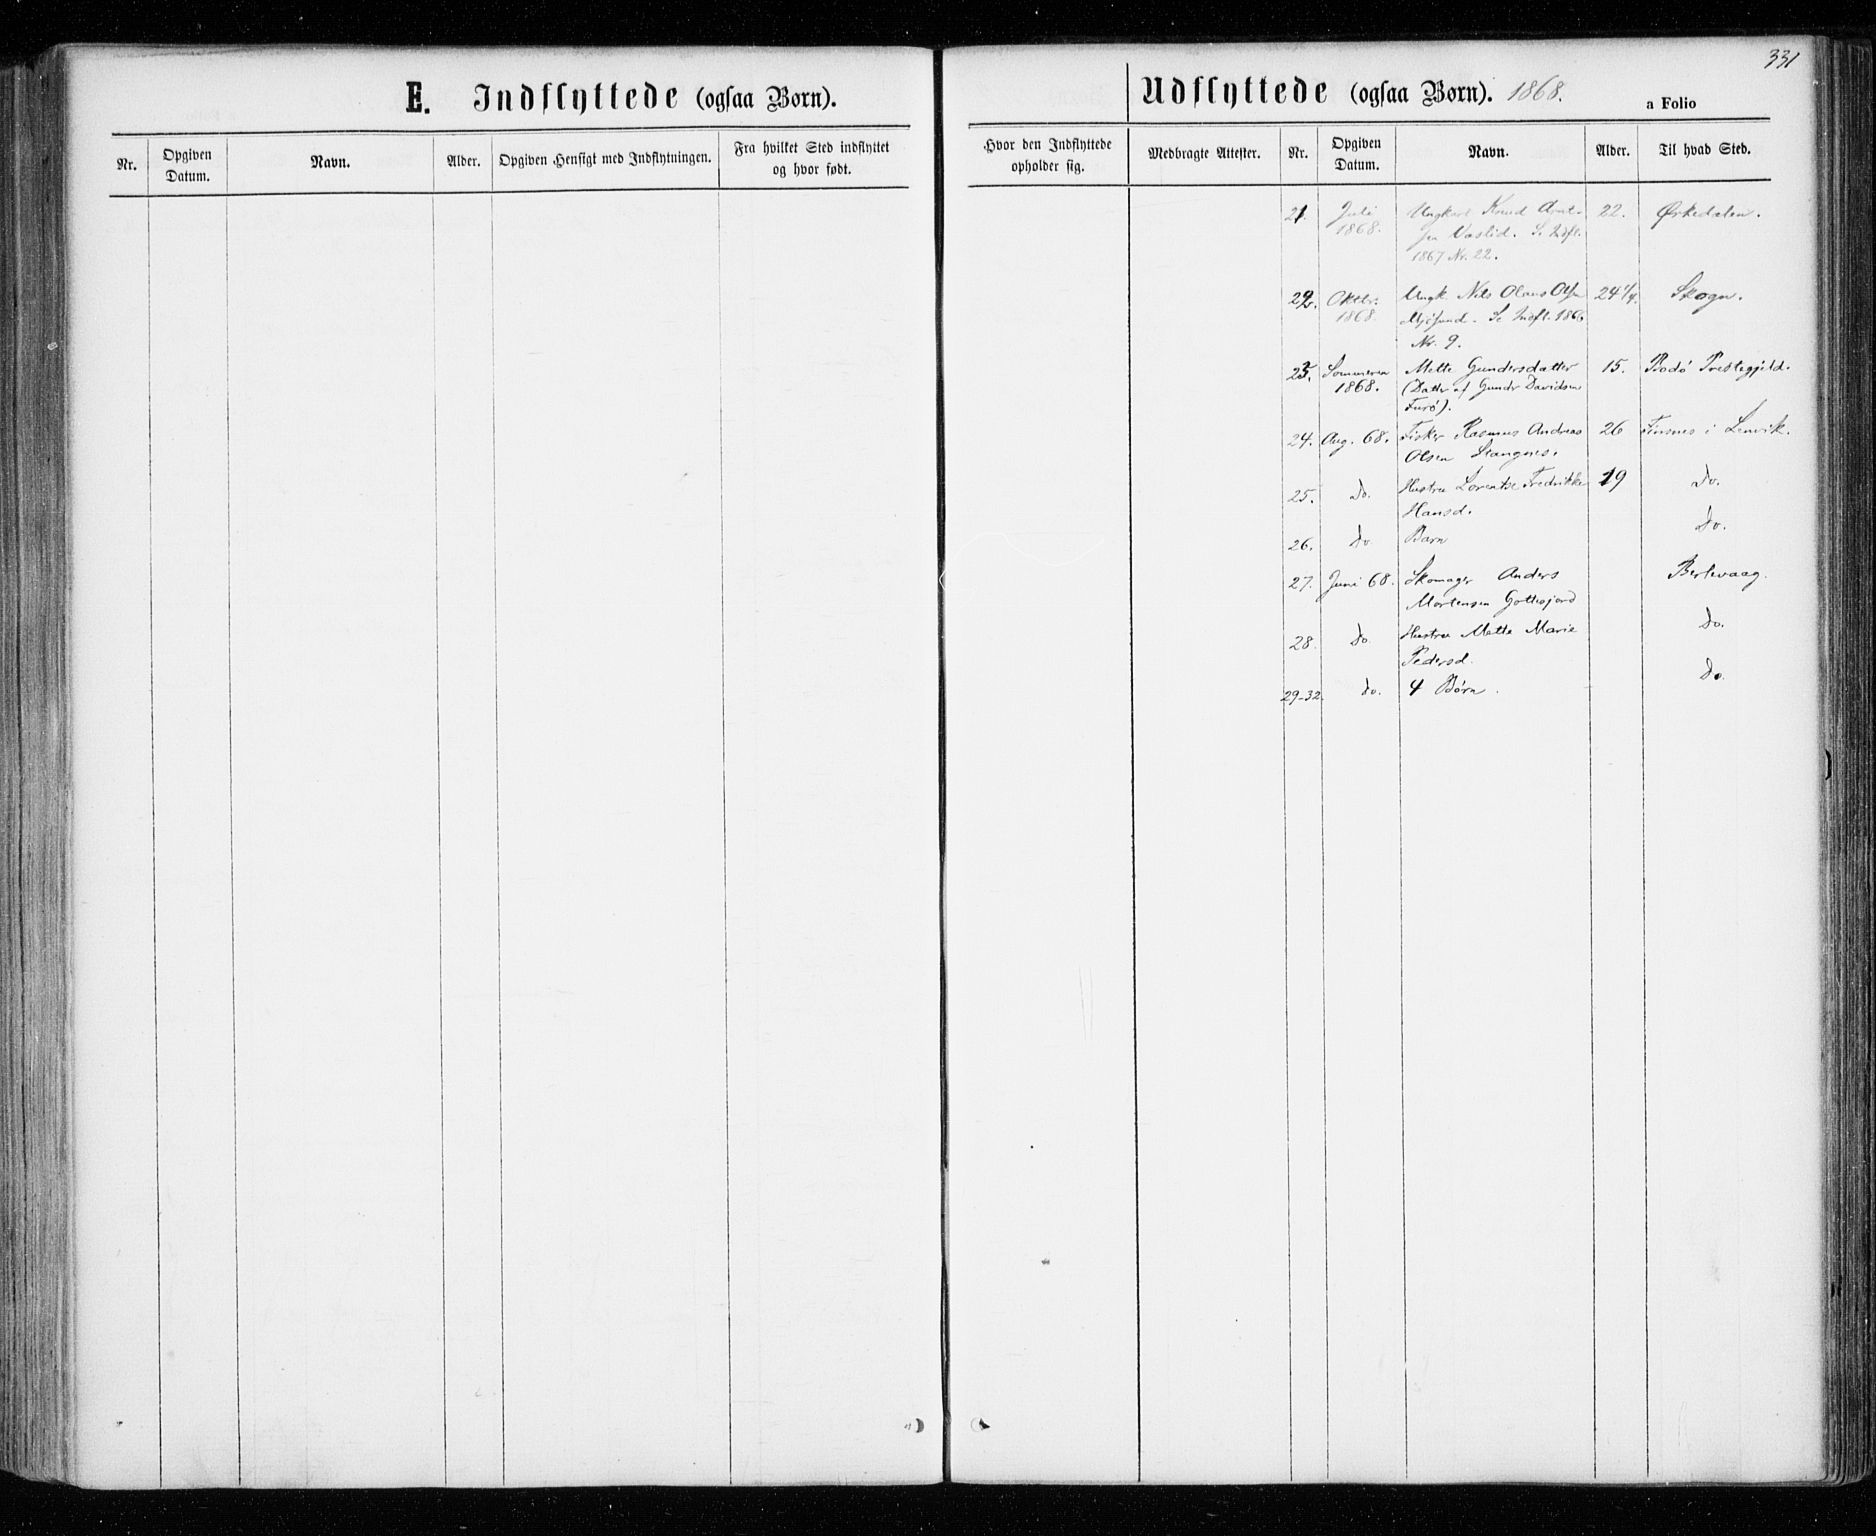 331
E. Indflyttede (ogsaa Børn).
Nr. Opgiven Datum. Navn. Alder. Opgiven Hensigt med Indflytningen. Fra hvilket Sted indflyttet og hvor født.
Udflyttede (ogsaa Børn). 1868. a Folio
Hvor den Indflyttede opholder sig. Medbragte Attester. Nr. Opgiven Datum. Navn. Alder. Til hvad Sted.
21. Juli Ungkarl Knud Arnt- 22. Ørkedalen.
1868. sen Vaslid. Se Indfl.
1867 Nr. 22.
22. Oktbr. Ungk. Nils Olaus Olsen 24 1/4. Skogn.
1868. Mjøsund. Se Indfl. 1866
Nr. 9.
23. Sommeren Mette Gundersdatter 15. Bodø Prestegjeld.
1868. (Datter af Gunder Davidsen
Furø).
24. Aug. 68. Fisker Rasmus Andreas 26 Finsnes i Lenvik.
Olsen Stangnes.
25. Do. Hustru Lorentse Fredrikke 19 Do.
Hansd.
26. Do Barn Do.
27. Juni 68. Skomager Anders Berlevaag.
Mortensen Gottesjord
28. Do. Hustru Mette Marie Do.
Pedersd.
29-32. Do. 4 Børn. Do.